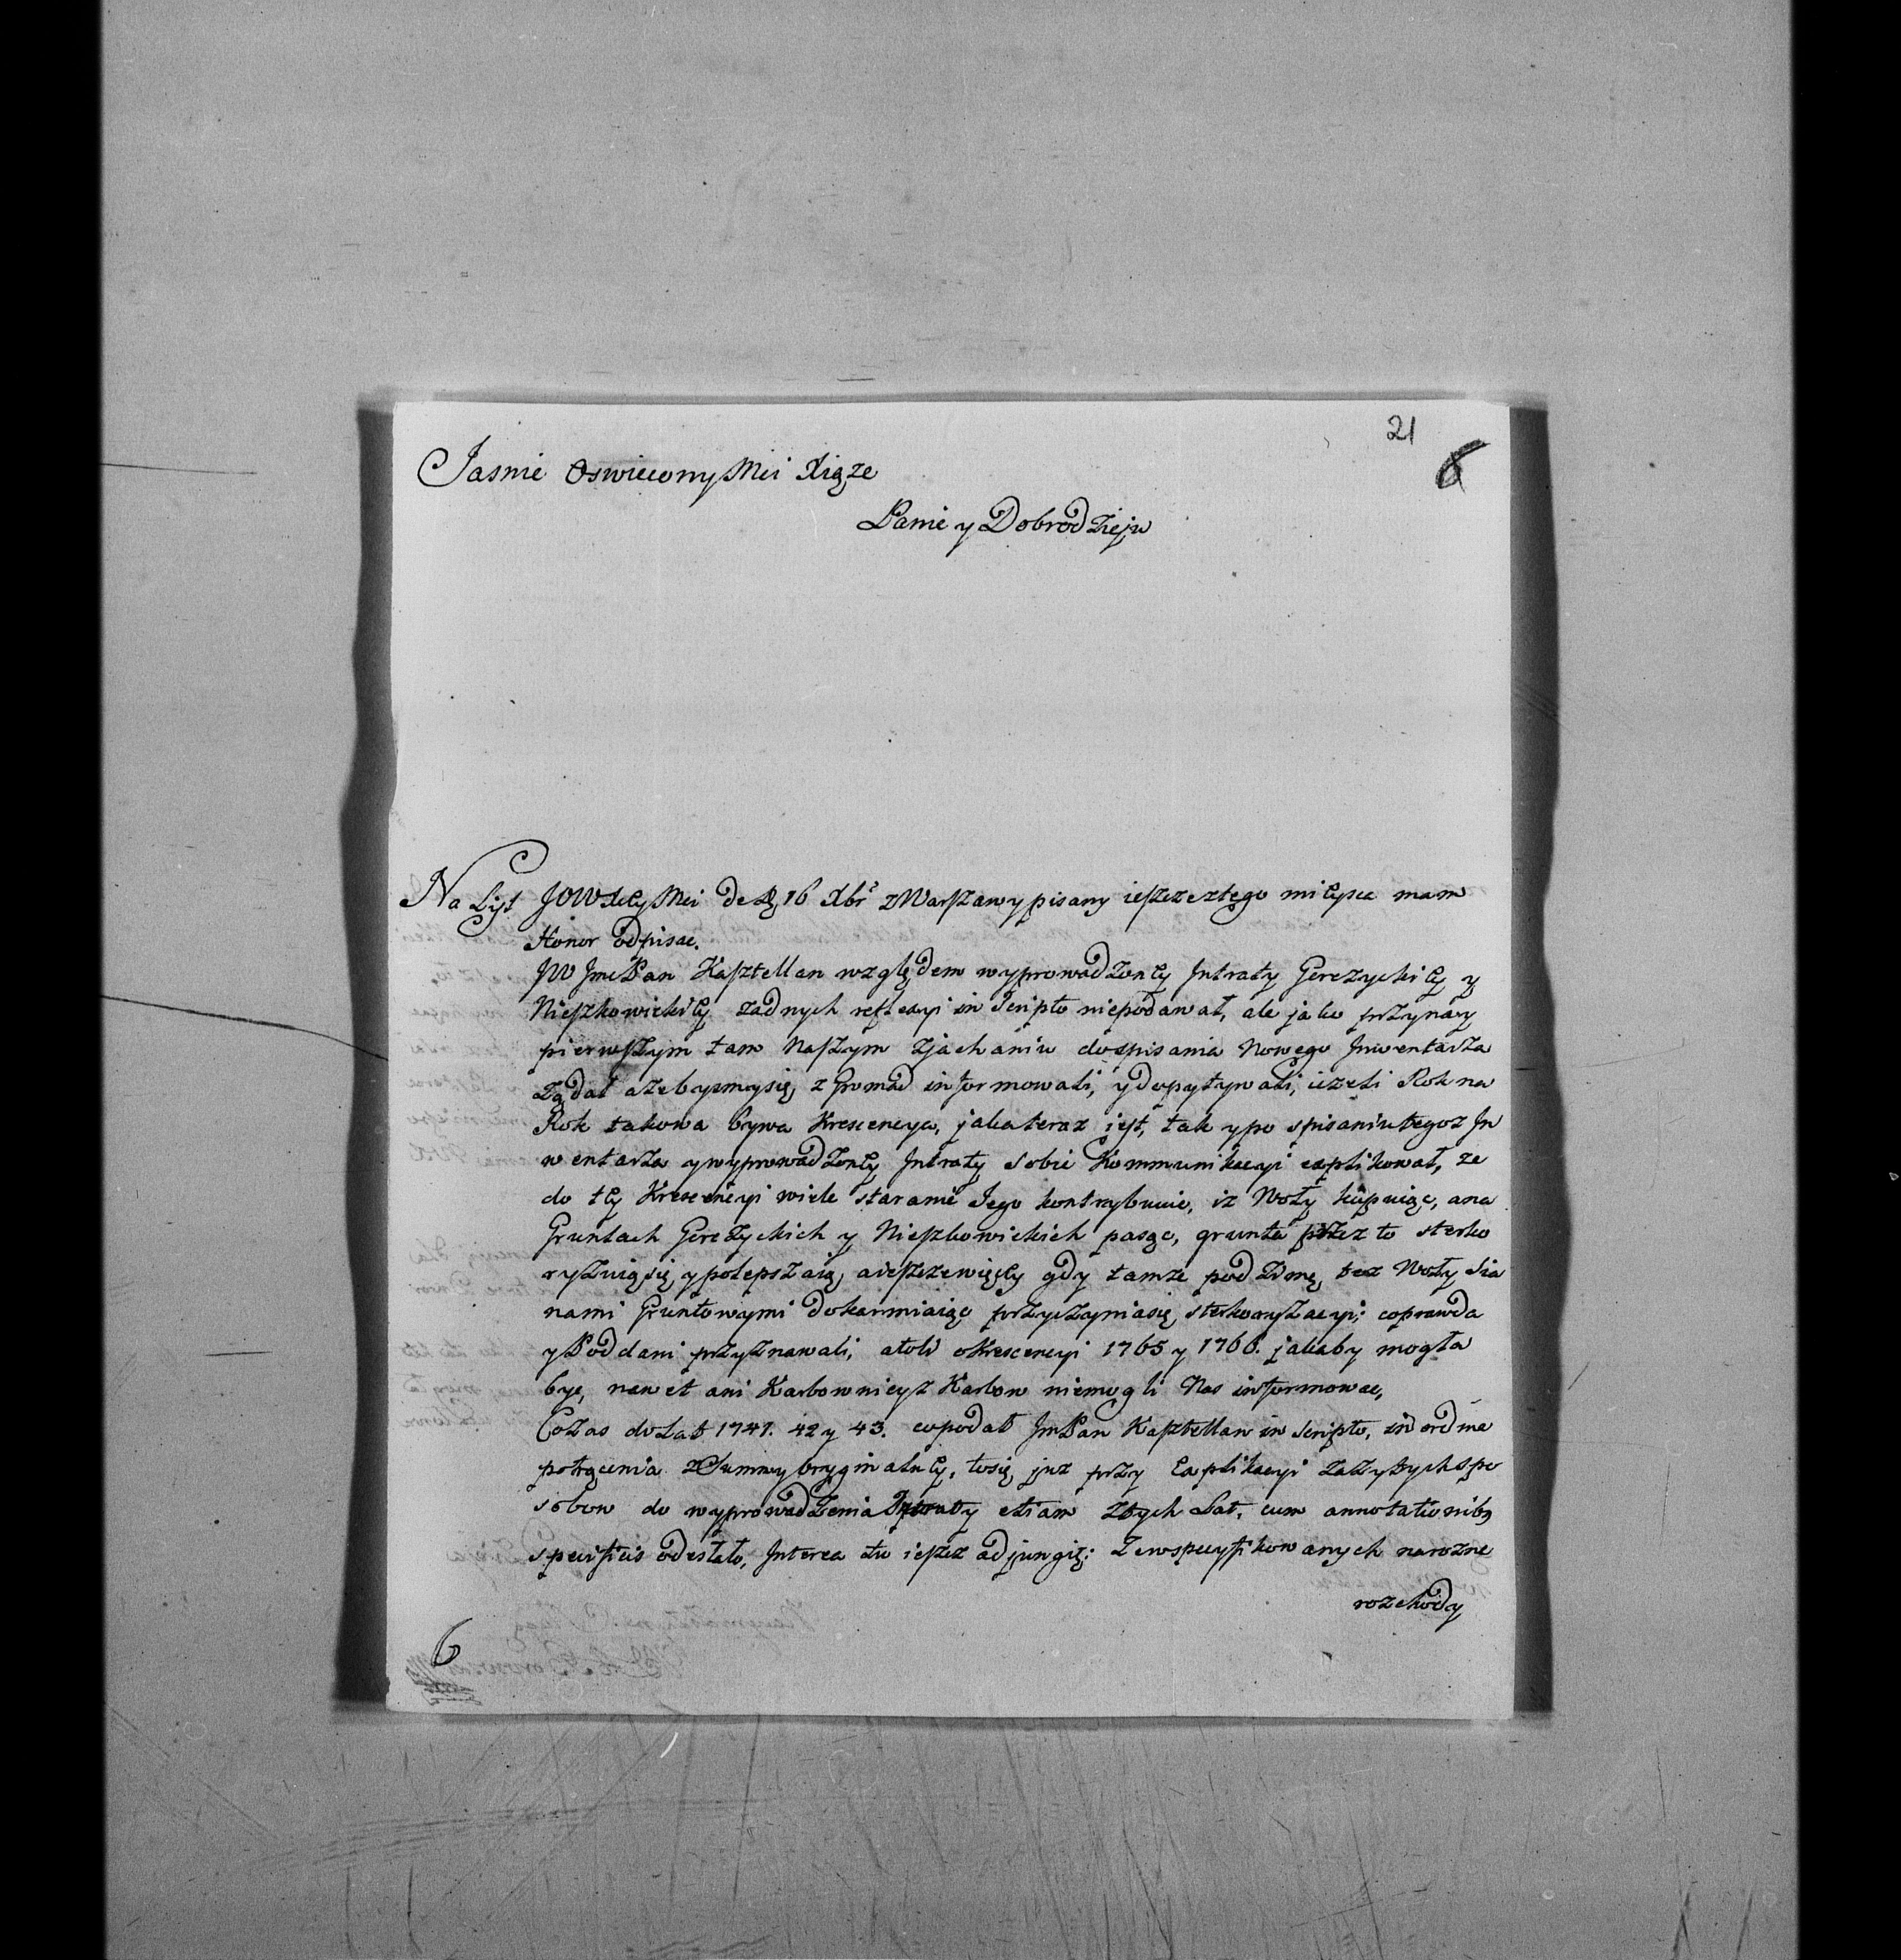 21
6
Jasnie Oswiecony Mci Xiąze
Panie y Dobrodzieju
Na List JOWXCy Mci de d. 16 Xbr zWarszawy pisany ieszcze ztego mieysca mam
Honor odpisac.
JW JmcPan Kasztellan względem wyprowadzoney Jntraty Gerezyckiey y
Nieszkowickiey zadnych reflexyi in Scripto niepodawał, ale jako przy nay
pierwszym tam Naszym zjachaniu do spisania Nowego Jnwentarza
ządał azebysmysię z Gromad informowali, y dopytywali, iezeli Rok na
Rok takowa bywa Krescencya, jaka teraz jest, tak y po spisaniu tegoz Jn
wentarza y wyprowadzoney Jntraty sobie Kommunikacyi explikował, ze
do tey Krescencyi wiele staranie Jego kontrybuuie, iz Woły kupuiąc, ana
Gruntach Gerezyckich y Nieszkowickich pasąc, grunta przez to sterko
ryzuiąsię, y polepszaią, aieszcze więcey gdy tamze pod Zimę tez Woły Sia
nami Gruntowymi dokarmiaiąc przyczyniasię sterkoryzacyi; coprawda
y Poddani przyznawali, atoli oKrescencyi 1765 y 1766. jakaby mogła
byc, nawet ani Karbownicy z Karbow niemogli Nas informowac,
Cozas do Lat 1741. 42 y 43. copodał JmPan Kasztellan in Scripto, in ordine
potrącenia zSummy oryginalney, tosię juz przy Explikacyi zazytych spo
sobow do wyprowadzenia Jntraty etiam ztych Lat, cum annotationibq
specificis odesłało, Jnterea tu ieszcz adjungię: Zewspecyfikowanych narozne
rozchody
6